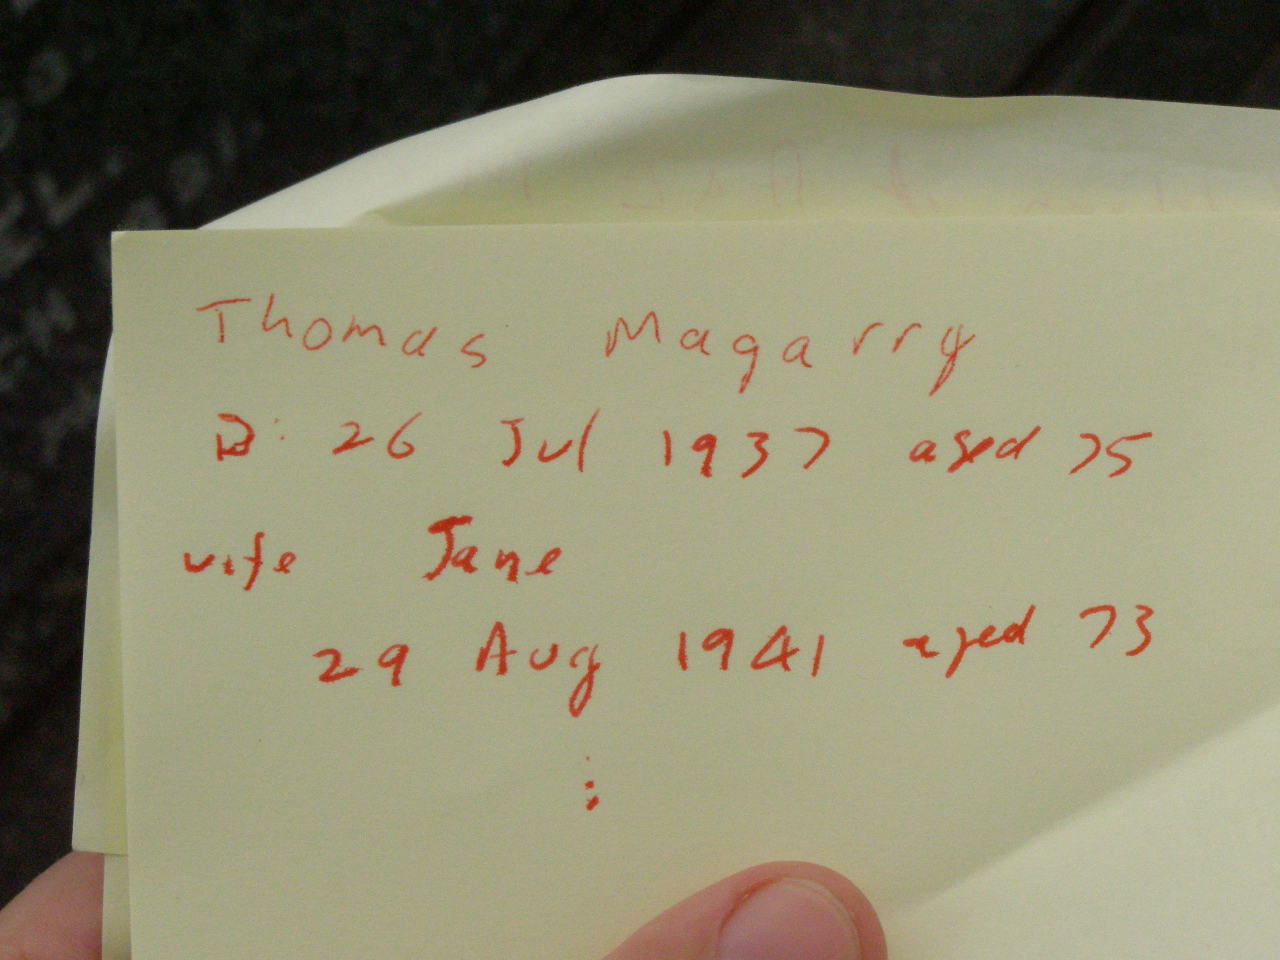 Thomas Magarry
D: 26 Jul 1937 aged 75
wife Jane
29 Aug 1941 aged 73
: